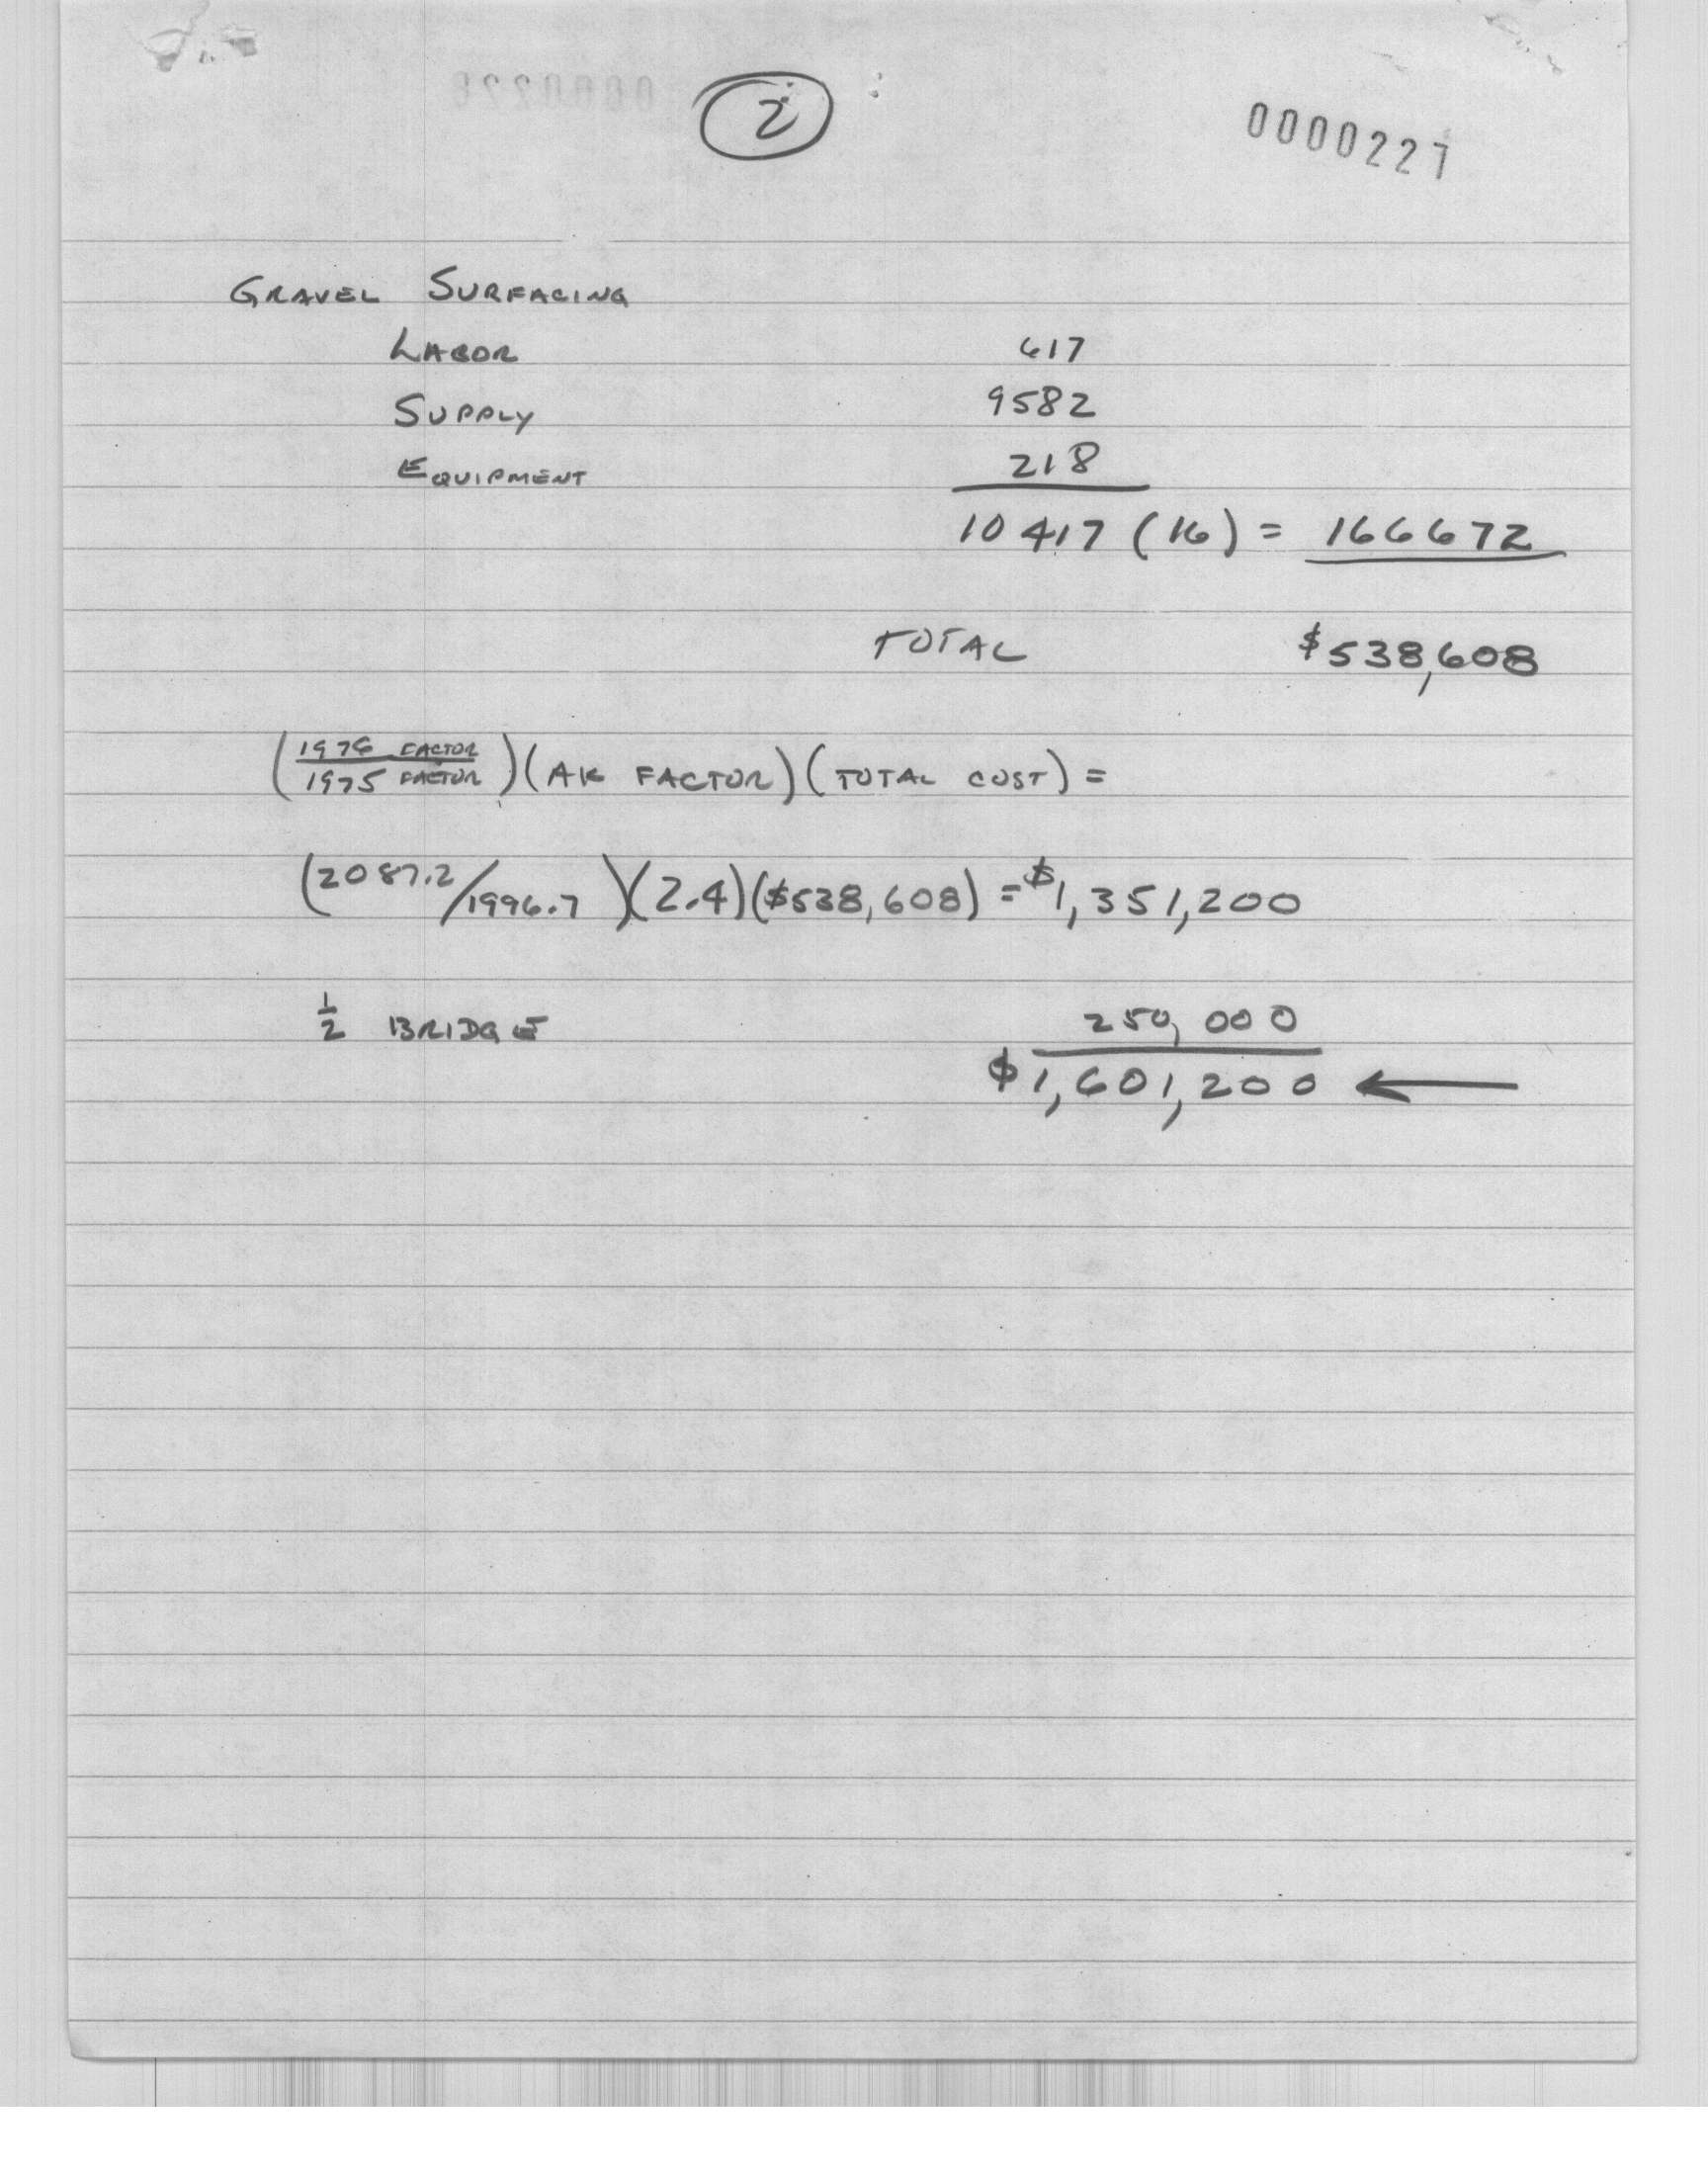 2
0000227
GRAVEL SURFACING
LABOR 617
SUPPLY 9582
EQUIPMENT 218
10417 (16) = 166672
TOTAL $538,608
(1976 FACTOR / 1975 FACTOR)(AK FACTOR)(TOTAL COST) =
(2087.2/1996.7)(2.4)($538,608) = $1,351,200
1/2 BRIDGE 250,000
$1,601,200